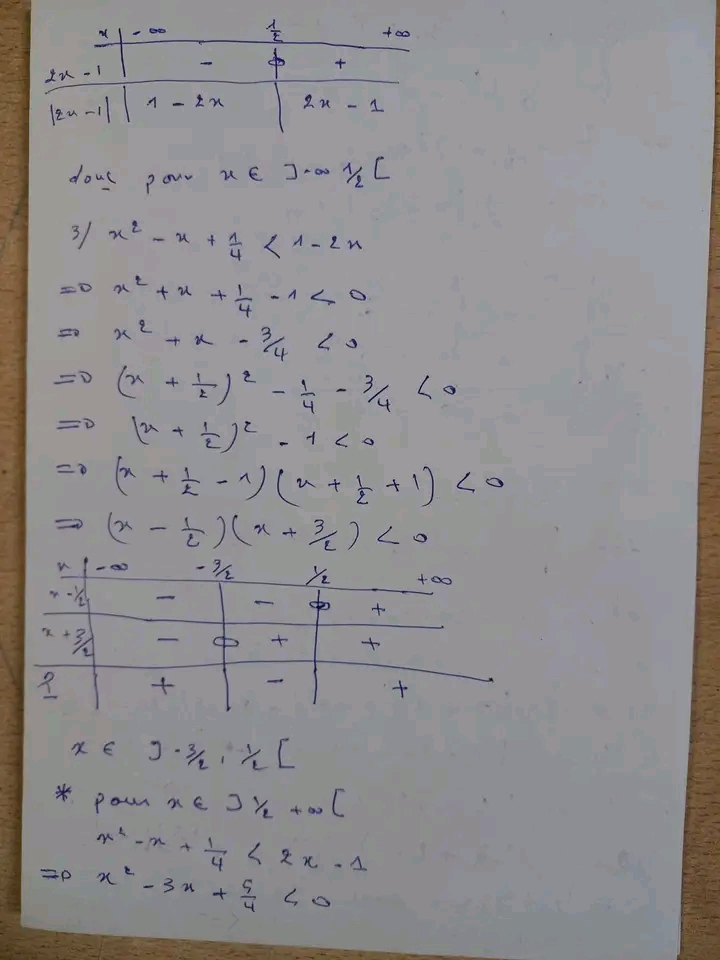 x | -∞ 1/2 +∞
2x - 1 | - 0 +
|2x - 1| | 1 - 2x | 2x - 1
donc pour x ∈ ]-∞ 1/2 [
3/ x² - x + 1/4 < 1 - 2x
=> x² + x + 1/4 - 1 < 0
=> x² + x - 3/4 < 0
=> (x + 1/2)² - 1/4 - 3/4 < 0
=> (x + 1/2)² - 1 < 0
=> (x + 1/2 - 1)(x + 1/2 + 1) < 0
=> (x - 1/2)(x + 3/2) < 0
x | -∞ -3/2 1/2 +∞
x - 1/2 | - | - 0 +
x + 3/2 | - 0 + | +
P | + | - | +
x ∈ ]-3/2, 1/2 [
* pour x ∈ ] 1/2 +∞ [
x² - x + 1/4 < 2x - 1
=> x² - 3x + 5/4 < 0